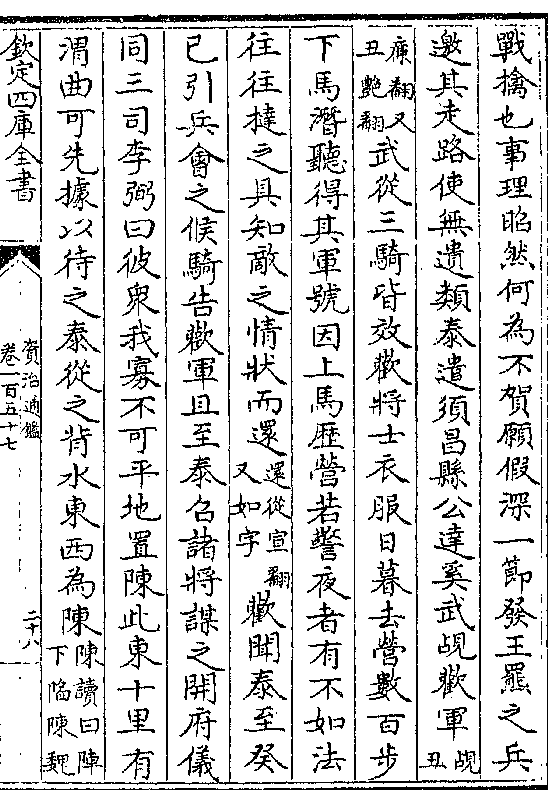 戰擒也事理昭然何為不賀願假深一節發王羆之兵
邀其走路使無遺類泰遣須昌縣公達奚武覘歡軍覘丑
亷翻又丑艷翻武從三騎皆效歡將士衣服日暮去營數百步
下馬潛聽得其軍號因上馬歴營若警夜者有不如法
往往撻之具知敵之情狀而還還從宣翻又如字歡聞泰至癸
巳引兵會之候騎告歡軍且至泰召諸將謀之開府儀
同三司李弼曰彼衆我寡不可平地置陳此東十里有
渭曲可先據以待之泰從之背水東西為陳陳讀曰陣下陷陳魏
欽定四庫全書
資治通鑑
卷一百五十七
二十八